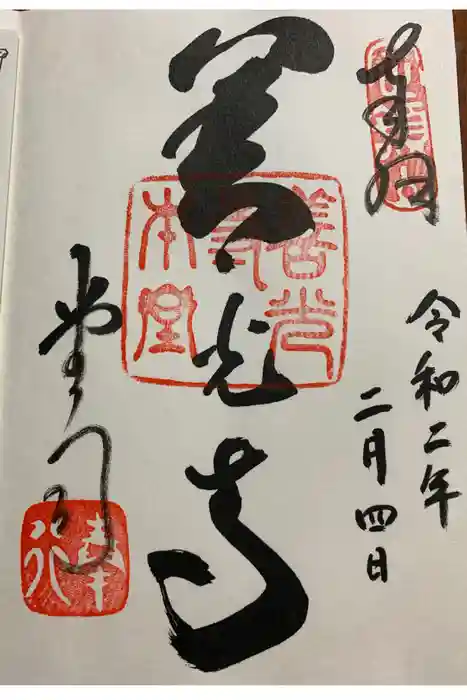 奉拝
令和二年
二月四日
善光寺
善光寺本堂
堂司
奉行